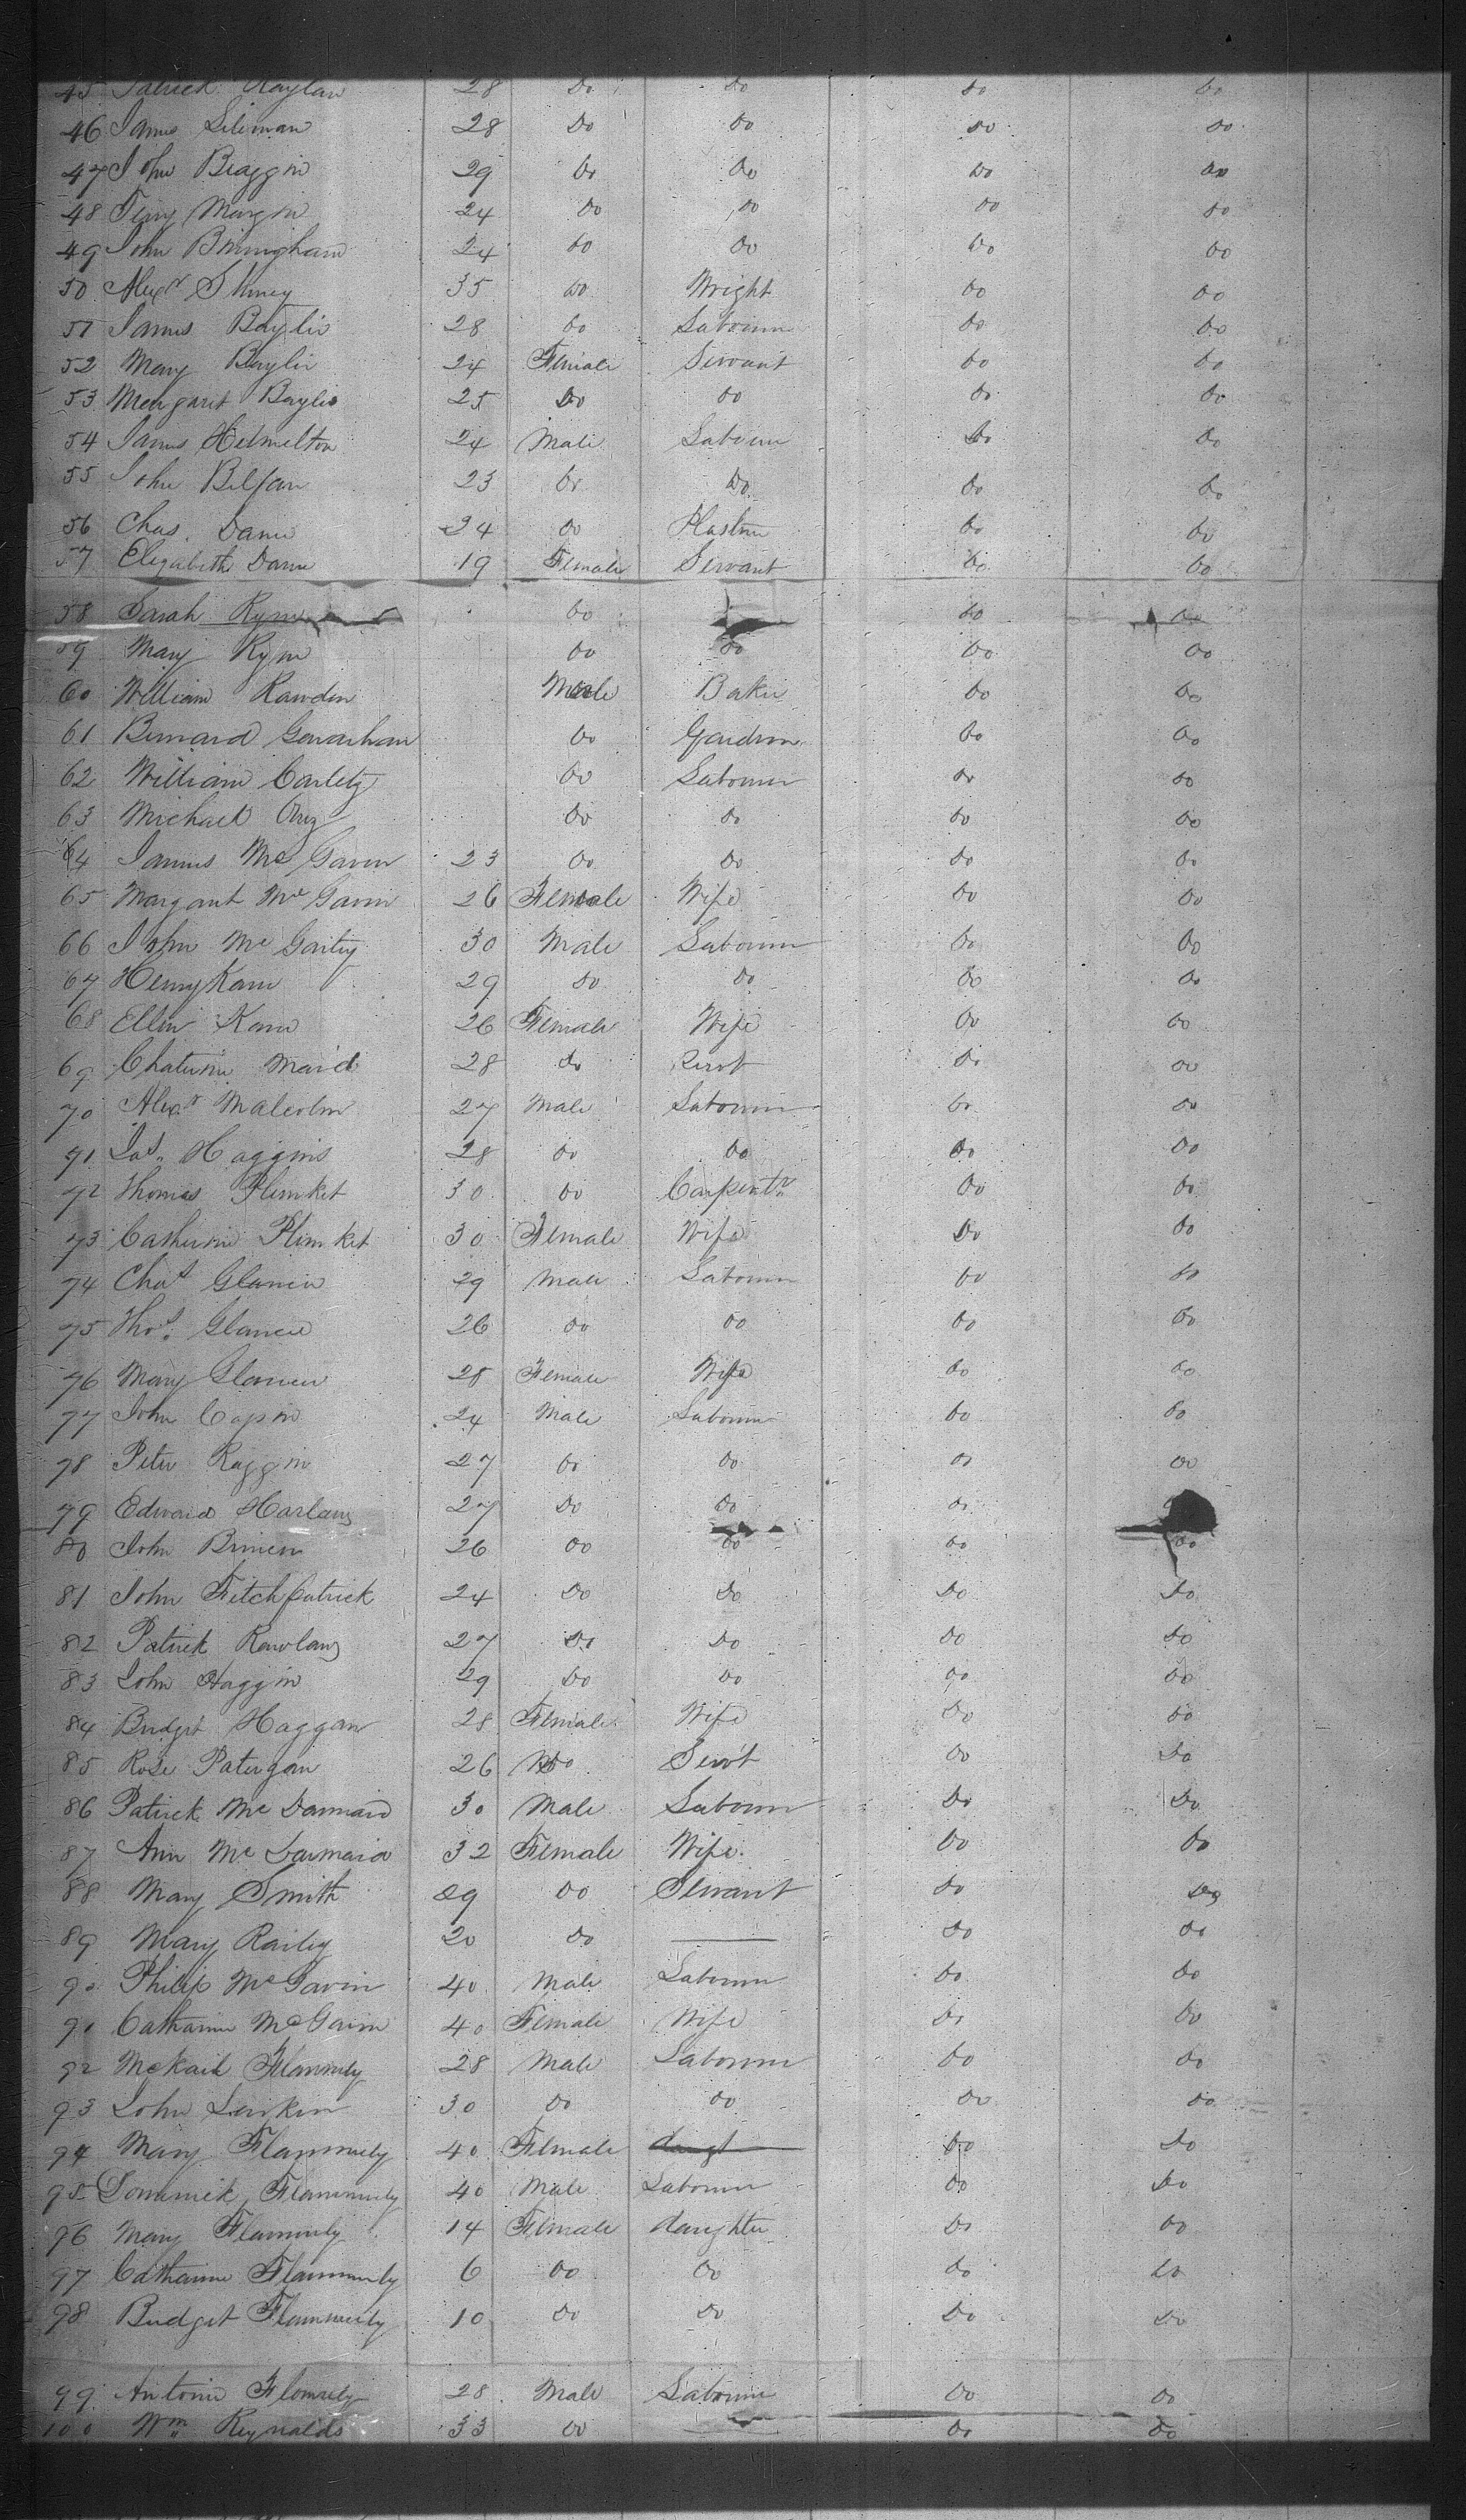 45 Patrick Raylan 28 Do Do Do Do
46 James Sileman 28 Do Do Do Do
47 John Braggin 29 Do Do Do Do
48 Terry Morgin 24 Do Do Do Do
49 John Biringham 24 Do Do Do Do
50 Alexr Shiney 35 Do Wright Do Do
51 James Baylis 28 Do Labourer Do Do
52 Mary Baylis 24 Female Servant Do Do
53 Margaret Baylis 25 Do Do Do Do
54 James Hetmelton 24 Male Labourer Do Do
55 John Belfan 23 Do Do Do Do
56 Chas. Dann 24 Do Plastrer Do Do
57 Elizabeth Dann 19 Female Servant Do Do
58 Sarah Rynn Do Do Do
59 Mary Rynn Do Do Do Do
60 William Rawden Male Baker Do Do
61 Bernard Do Do Do
62 William Carlety Do Labourer Do Do
63 Michael Do Do Do Do
64 James Mc Gavin 23 Do Do Do Do
65 Margaret Mc Gavin 26 Female Wife Do Do
66 John Mc Garity 30 Male Labourer Do Do
67 Henry Kann 29 Do Do Do Do
68 Ellen Kann 26 Female Wife Do Do
69 Chaterine Maid 28 Do Servt Do Do
70 Alexr Malcolm 27 Male Labourer Do Do
71 Jas. Haggins 28 Do Do Do Do
72 Thomas Plunket 30 Do Carpentr Do Do
73 Catherine Plunket 30 Female Wife Do Do
74 Chas Glancie 29 Male Labourer Do Do
75 Thos. Glancie 26 Do Do Do Do
76 Mary Glancie 28 Female Wife Do Do
77 John Capin 24 Male Labourer Do Do
78 Peter Raggin 27 Do Do Do Do
79 Edward Harlany 27 Do Do Do
80 John Brinien 26 Do Do Do Do
81 John Fitchpatrick 24 Do Do Do Do
82 Patrick Rowlany 27 Do Do Do Do
83 John Haggin 29 Do Do Do Do
84 Bridget Haggan 28 Female Wife Do Do
85 Rose Patergan 26 Do Servt Do Do
86 Patrick Mc Darmaid 30 Male Labourer Do Do
87 Ann Mc Darmaid 32 Female Wife Do Do
88 Mary Smith 29 Do Servant Do Do
89 Mary Railey 20 Do Do Do
90 Philip Mc Gavin 40 Male Labourer Do Do
91 Catharine McGavin 40 Female Wife Do Do
92 Mckail Flannnely 28 Male Labourer Do Do
93 John Lenkin 30 Do Do Do Do
94 Mary Flannnely 40 Female daugt Do Do
95 Dominick Flannnely 40 Male Labourer Do Do
96 Mary Flannnely 14 Female daughter Do Do
97 Catharine Flannnely 6 Do Do Do Do
98 Bridget Flannnely 10 Do Do Do Do
99 Antonie Flannely 28 Male Labourer Do Do
100 Wm Reynalds 33 Do Do Do